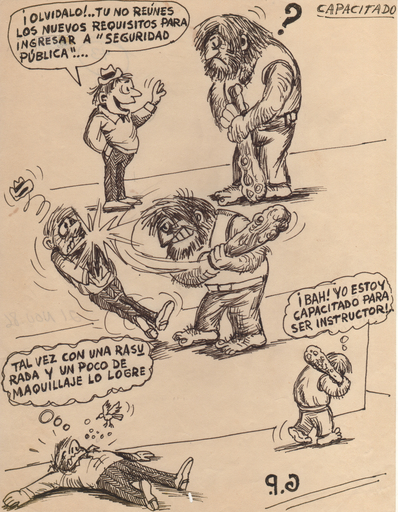 CAPACITADO
¡OLVIDALO!..TU NO REÚNES
LOS NUEVOS REQUISITOS PARA
INGRESAR A "SEGURIDAD
PÚBLICA"...
?
¡BAH! YO ESTOY
CAPACITADO PARA
SER INSTRUCTOR!..
TAL VEZ CON UNA RASU
RADA Y UN POCO DE
MAQUILLAJE LO LOGRE
G.P.